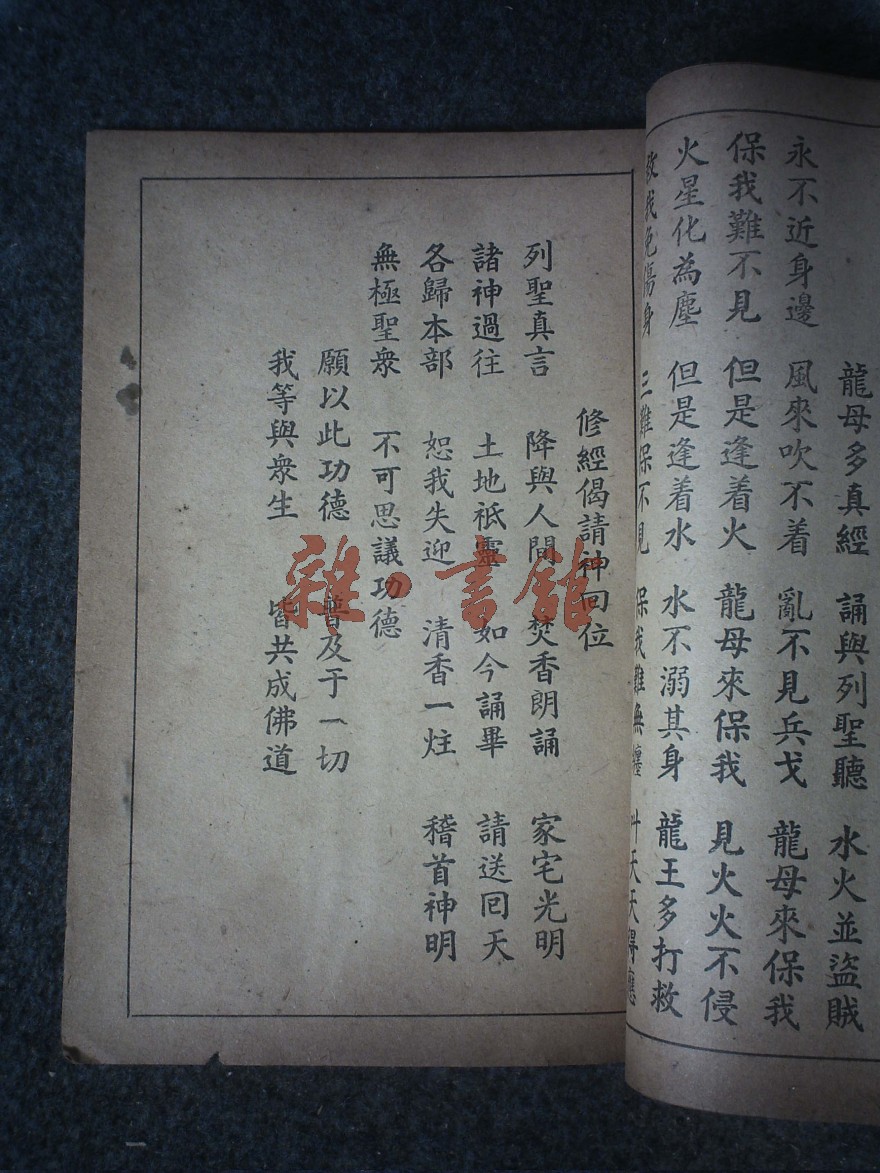 龍母多真經 誦與列聖聽 水火並盜賊
永不近身邊 風來吹不着 亂不見兵戈 龍母來保我
保我難不見 但是逢着火 龍母來保我 見火火不侵
火星化為塵 但是逢着水 水不溺其身 龍王多打救
救我免傷身 三難保不見 保我難無纏
修經偈請神回位
列聖真言 降與人間 焚香朗誦 家宅光明
諸神過往 土地祇靈 如今誦畢 請送回天
各歸本部 恕我失迎 清香一炷 稽首神明
無極聖衆 不可思議功德
願以此功德 普及于一切
我等與衆生 皆共成佛道
雜·書館